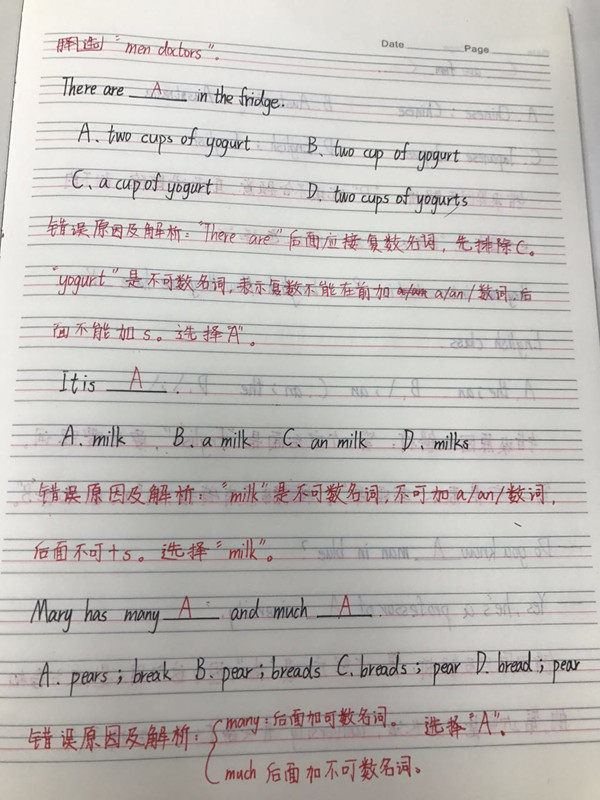 Date Page
选 "men doctors".
There are A in the fridge.
A. two cups of yogurt B. two cup of yogurt
C. a cup of yogurt D. two cups of yogurts
错误原因及解析:"There are"后面应接复数名词,先排除C。
"yogurt"是不可数名词,表示复数不能在前加 a/an a/an/数词,后
面不能加s。选择"A"。
It is A .
A. milk B. a milk C. an milk D. milks
错误原因及解析:"milk"是不可数名词,不可加a/an/数词,
后面不可+s。选择"milk"。
Mary has many A and much A .
A. pears; break B. pear; breads C. breads; pear D. bread; pear
错误原因及解析: many:后面加可数名词。 选择"A"。
much 后面加不可数名词。